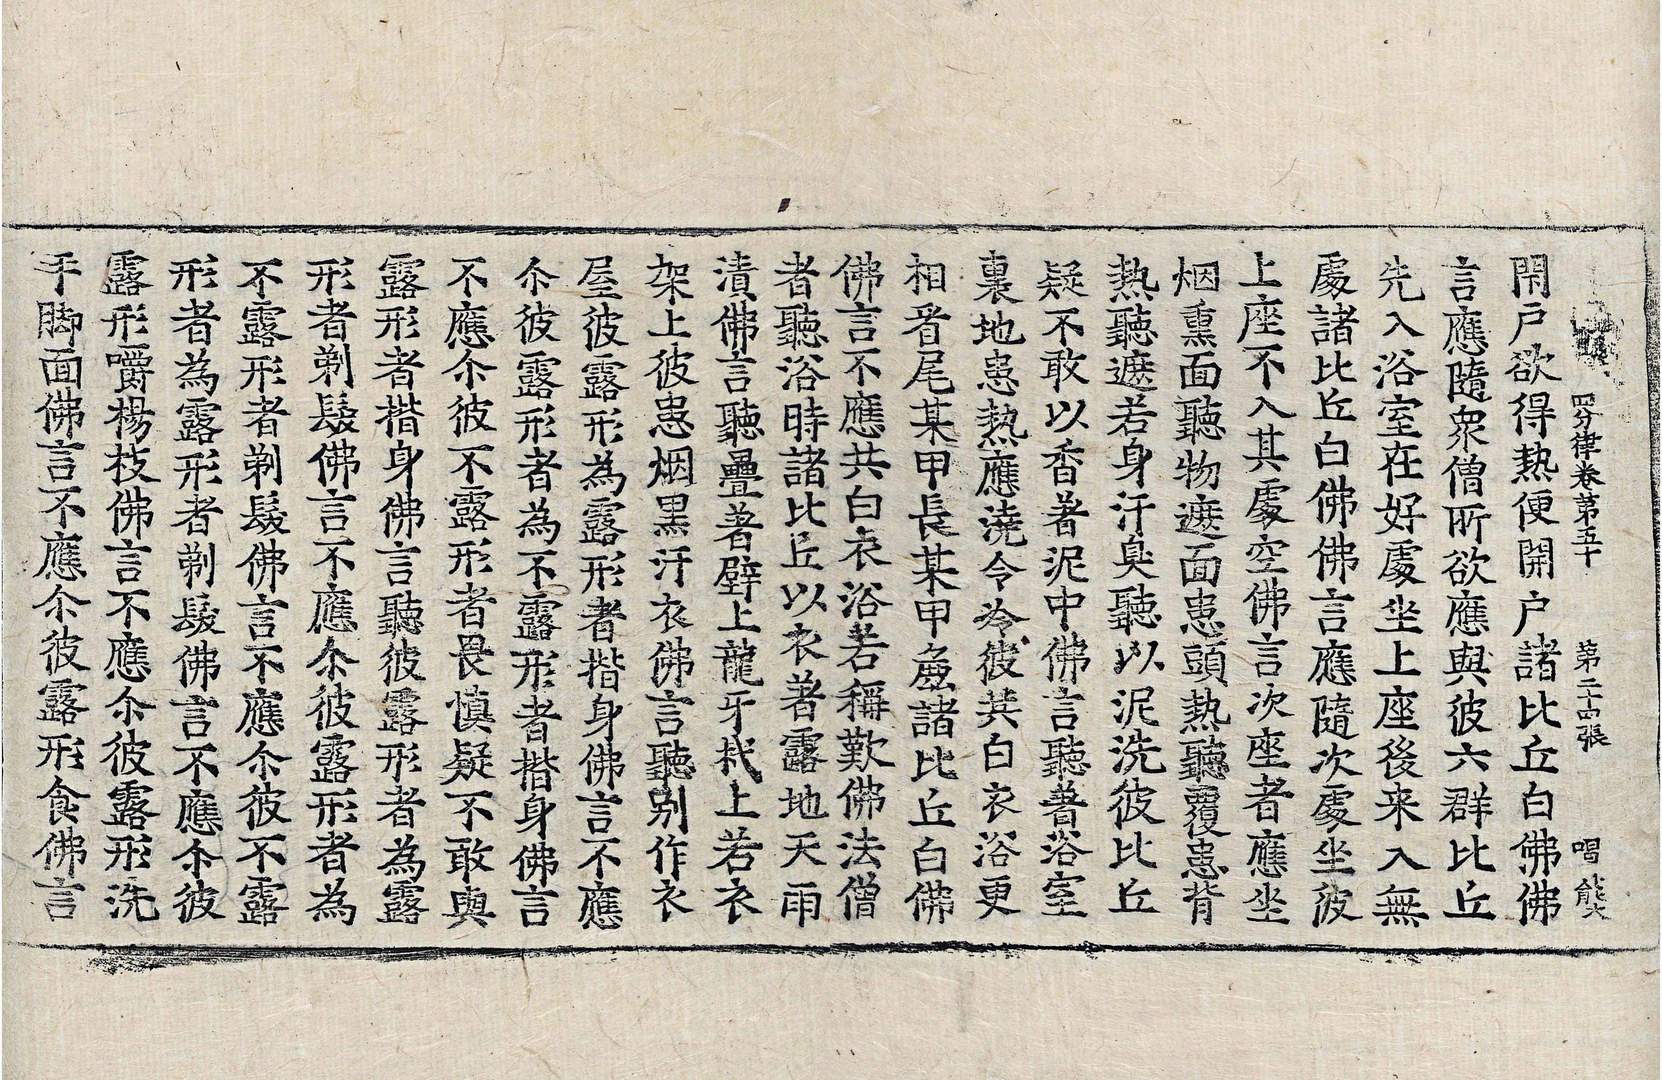 四分律卷第五十　第二十四張　唱　熊
閇戸欲得熱便開户諸比丘白佛佛
言應隨衆僧所欲應與彼六群比丘
先入浴室在好處坐上座後来入無
處諸比丘白佛佛言應隨次處坐彼
上座不入其處空佛言次座者應坐
烟熏面聽物遮面患頭熱聽覆患背
熱聽遮若身汗臭聽以泥洗彼比丘
疑不敢以香著泥中佛言聽著浴室
裏地患熱應澆令冷彼共白衣浴更
相看尾某甲長某甲麁諸比丘白佛
佛言不應共白衣浴若稱歎佛法僧
者聽浴時諸比丘以衣著露地天雨
漬佛言聽疊著壁上龍牙杙上若衣
架上彼患烟黑汙衣佛言聽別作衣
屋彼露形為露形者揩身佛言不應
尒彼露形者為不露形者揩身佛言
不應尒彼不露形者畏慎疑不敢與
露形者揩身佛言聽彼露形者為露
形者剃髮佛言不應尒彼露形者為
不露形者剃髮佛言不應尒彼不露
形者為露形者剃髮佛言不應尒彼
露形嚼楊枝佛言不應尒彼露形洗
手脚面佛言不應尒彼露形食佛言